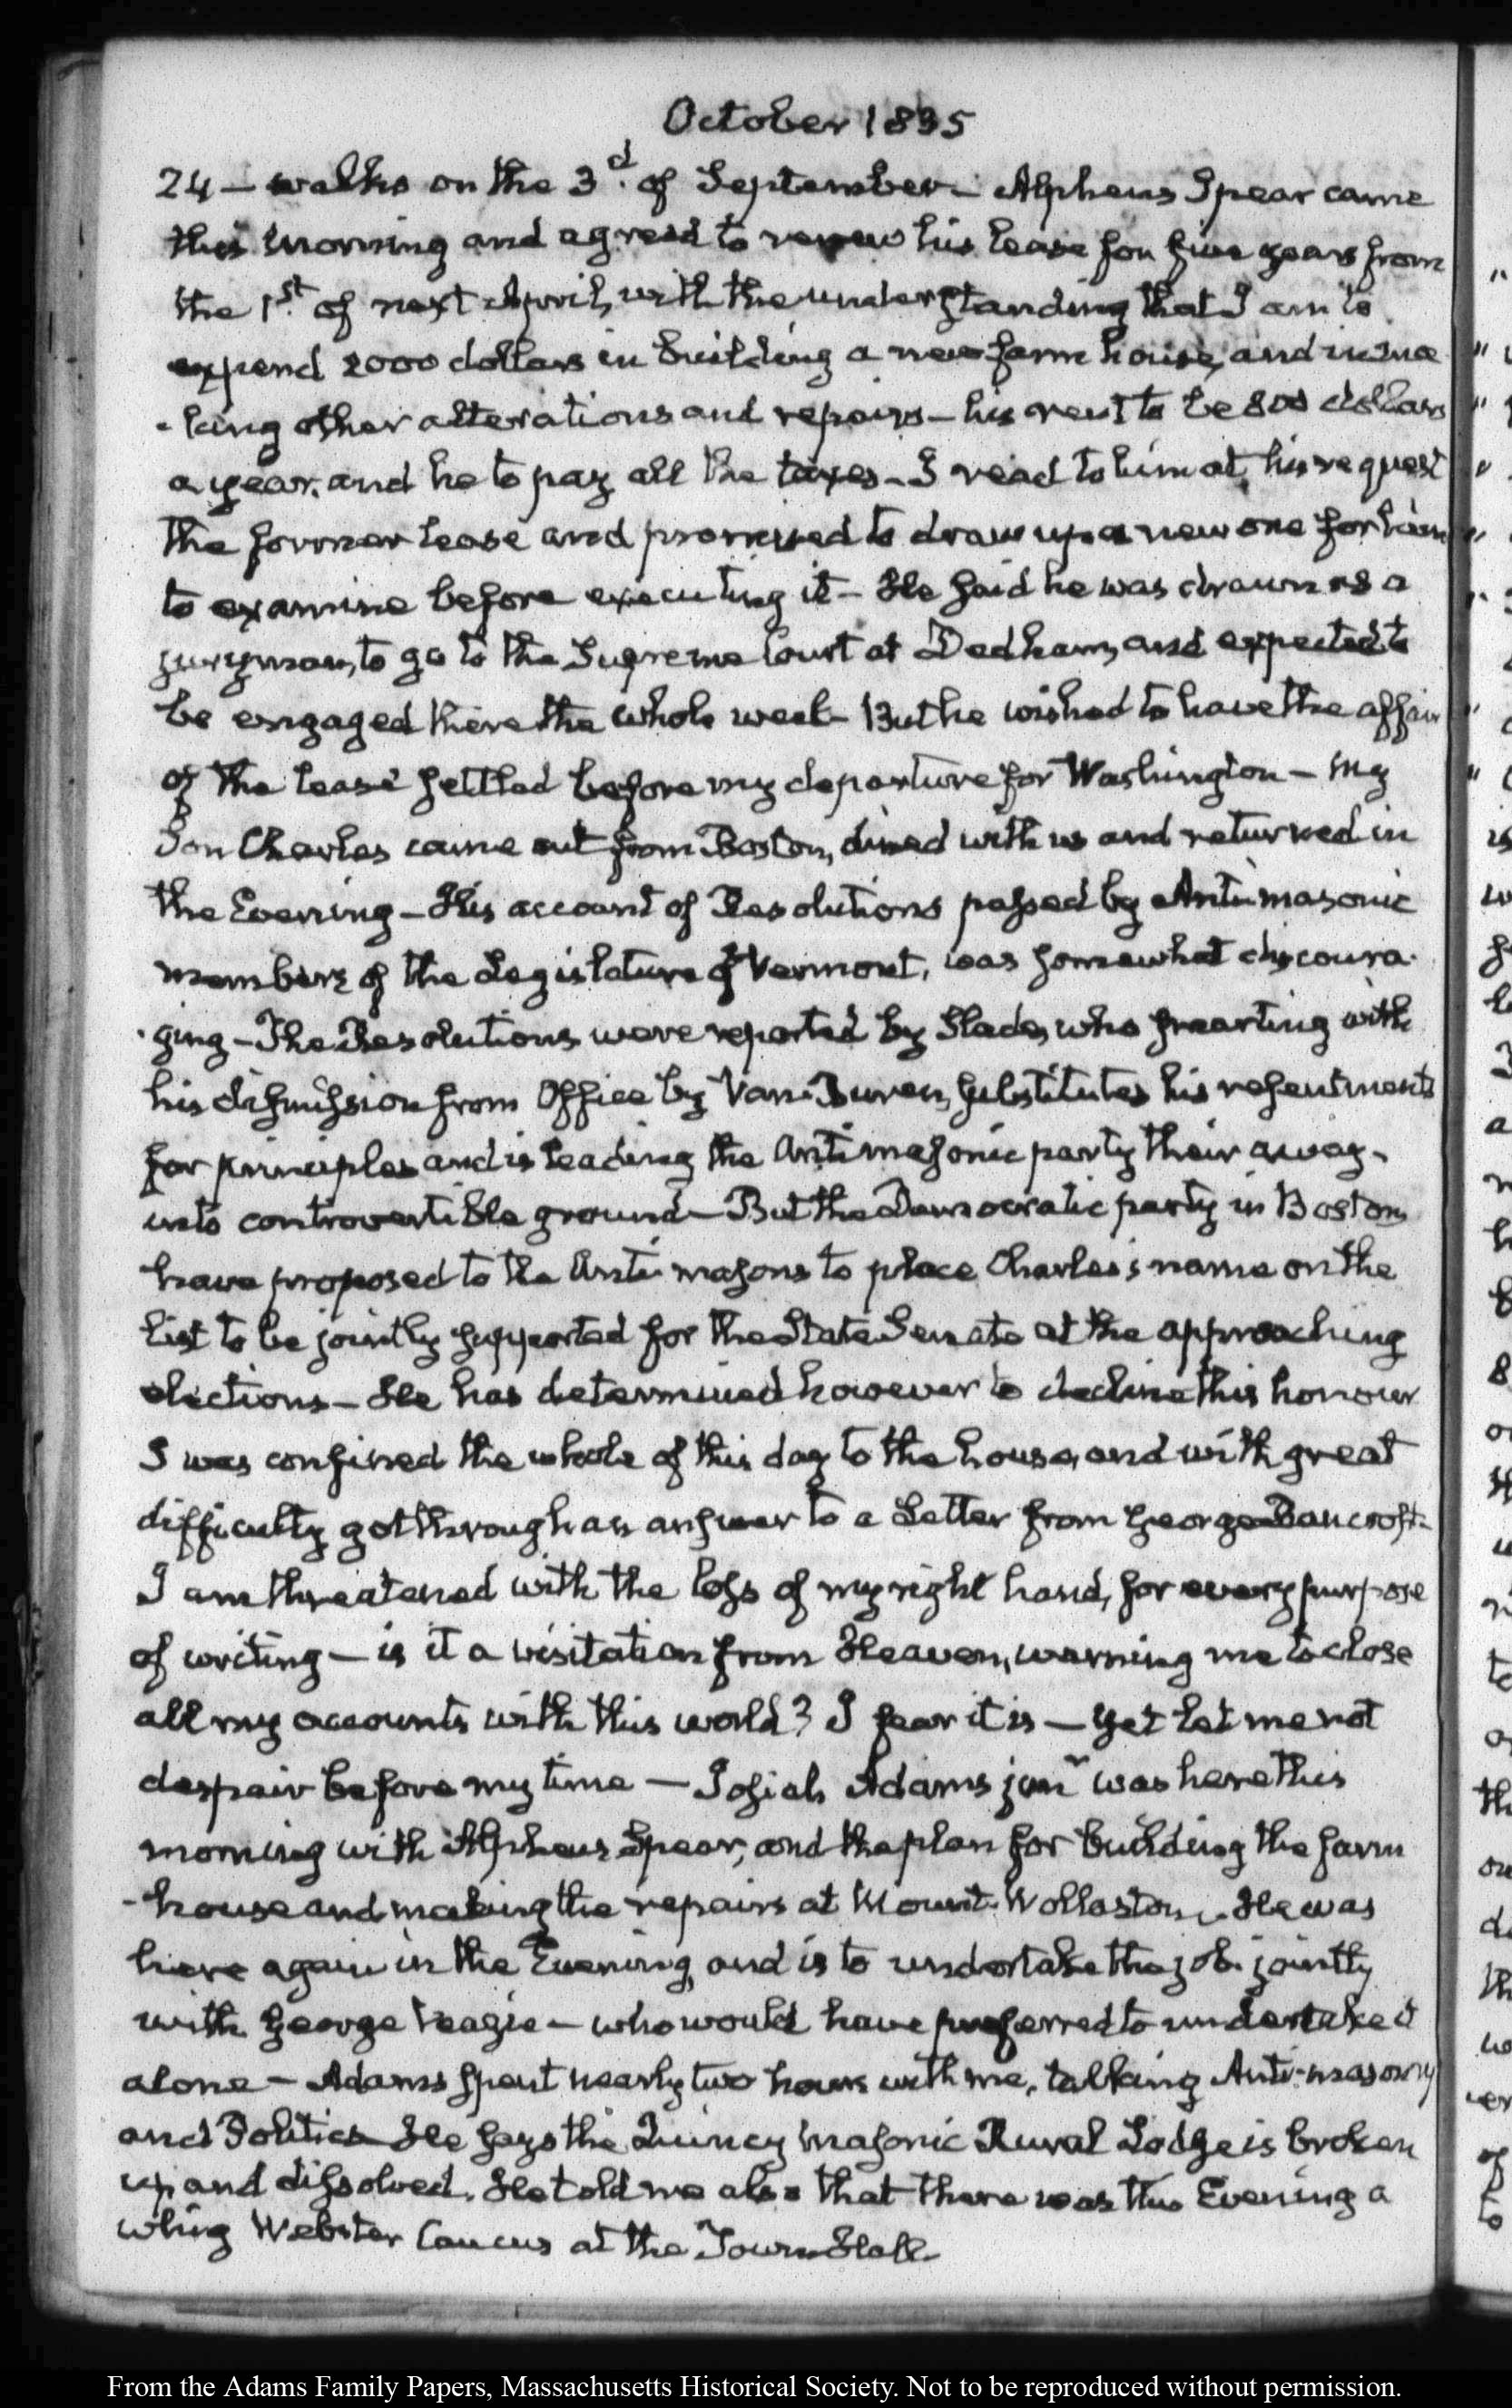 October 1835
24 — walks on the 3d. of September — Alpheus Spear came
this morning and agreed to renew his lease for five years from
the 1st. of next April, with the understanding that I am to
expend 2000 dollars in building a new farm house, and in ma
-king other alterations and repairs — his rent to be 800 dollars
a year, and he to pay all the taxes — I read to him at his request
the former lease and promised to draw up a new one for him
to examine before executing it — He said he was drawn as a
juryman, to go to the Supreme Court at Dedham, and expected to
be engaged there the whole week — But he wished to have the affair
of the lease settled before my departure for Washington — My
Son Charles came out from Boston, dined with us and returned in
the Evening — His account of Resolutions passed by Antimasonic
members of the Legislature of Vermont, was somewhat discoura-
-ging — The Resolutions were reported by Slade, who smarting with
his dismission from Office by Van Buren, substitutes his resentments
for principles and is leading the Antimasonic party their away
into controvertible ground — But the Democratic party in Boston
have proposed to the Anti-masons to place Charles's name on the
list to be jointly supported for the State Senate at the approaching
elections — He has determined however to decline this honour
I was confined the whole of this day to the house, and with great
difficulty got through an answer to a Letter from George Bancroft —
I am threatened with the loss of my right hand, for every purpose
of writing — is it a visitation from Heaven, warning me to close
all my accounts with this world? I fear it is — yet let me not
despair before my time — Josiah Adams junr was here this
morning with Alpheus Spear, and the plan for building the farm
-house and making the repairs at Mount Wollaston. He was
here again in the Evening, and is to undertake the job jointly
with George Veazie — who would have preferred to undertake it
alone — Adams spent nearly two hours with me, talking Anti-masonry
and Politics — He says the Quincy Masonic Rural Lodge is broken
up and dissolved. He told me also that there was this Evening a
whig Webster Caucus at the Town Hall —
From the Adams Family Papers, Massachusetts Historical Society. Not to be reproduced without permission.